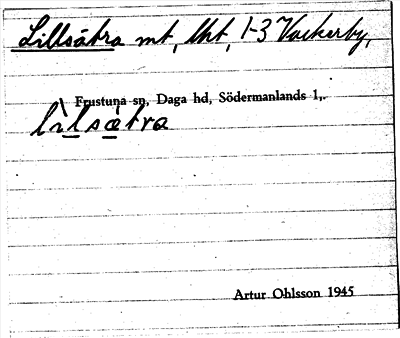 Lillsätra mt, lht, 1-3 Vackerby,
Frustuna sn, Daga hd, Södermanlands l,.
lìlsætra
Artur Ohlsson 1945